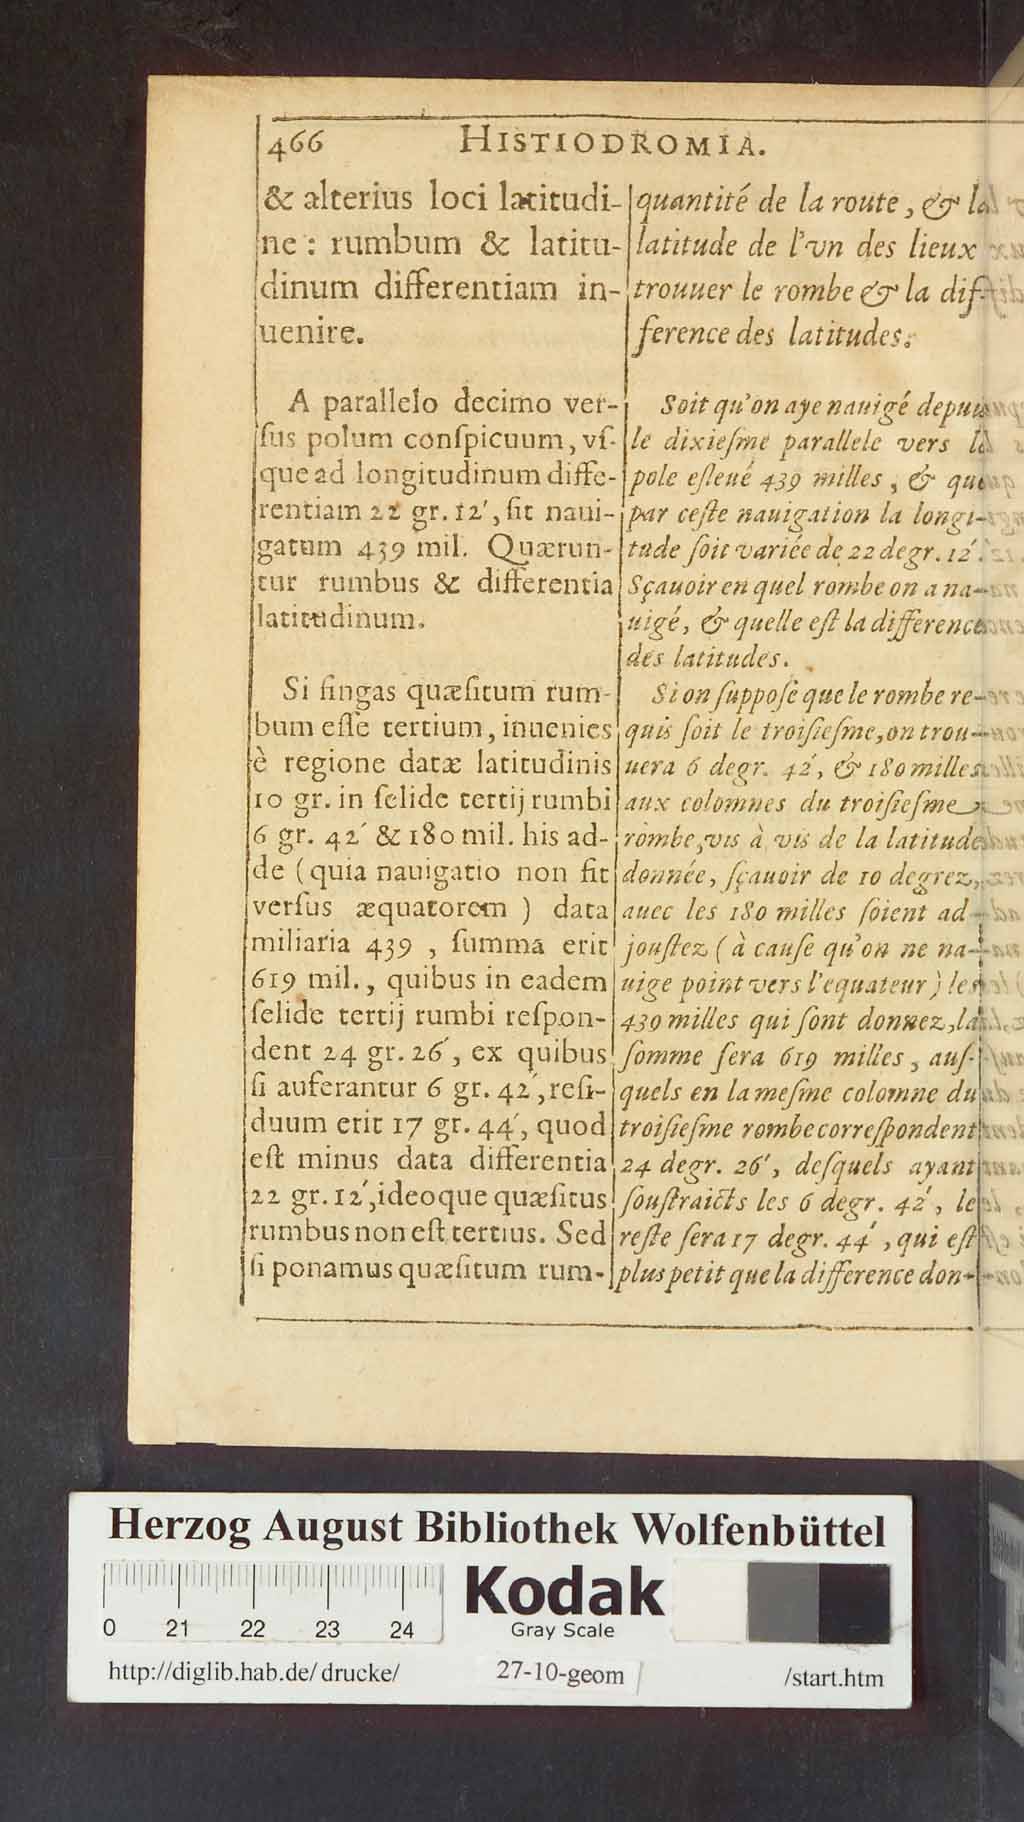 466 HISTIODROMIA.
& alterius loci latitudi-
ne : rumbum & latitu-
dinum differentiam in-
uenire.
A parallelo decimo ver-
ſus polum conſpicuum, vſ-
que ad longitudinum diffe-
rentiam 22 gr. 12′, ſit naui-
gatum 439 mil. Quærun-
tur rumbus & differentia
latitudinum.
Si fingas quæſitum rum-
bum eſſe tertium, inuenies
è regione datæ latitudinis
10 gr. in ſelide tertij rumbi
6 gr. 42′ & 180 mil. his ad-
de (quia nauigatio non fit
verſus æquatorem ) data
miliaria 439 , ſumma erit
619 mil., quibus in eadem
ſelide tertij rumbi reſpon-
dent 24 gr. 26′, ex quibus
ſi auferantur 6 gr. 42′, reſi-
duum erit 17 gr. 44′, quod
eſt minus data differentia
22 gr. 12′, ideoque quæſitus
rumbus non eſt tertius. Sed
ſi ponamus quæſitum rum-
quantité de la route, & la
latitude de l'vn des lieux
trouuer le rombe & la dif-
ference des latitudes.
Soit qu'on aye nauigé depuis
le dixieſme parallele vers le
pole eſleué 439 milles , & que
par ceſte nauigation la longi-
tude ſoit variée de 22 degr. 12′.
Sçauoir en quel rombe on a na-
uigé, & quelle eſt la difference
des latitudes.
Si on ſuppoſe que le rombe re-
quis ſoit le troiſieſme, on trou-
uera 6 degr. 42′, & 180 milles
aux colomnes du troiſieſme
rombe, vis à vis de la latitude
donnée, ſçauoir de 10 degrez,
auec les 180 milles ſoient ad-
jouſtez (à cauſe qu'on ne na-
uige point vers l'equateur) les
439 milles qui ſont donnez, la
ſomme ſera 619 milles, auſ-
quels en la meſme colomne du
troiſieſme rombe correſpondent
24 degr. 26′, deſquels ayant
ſouſtraicts les 6 degr. 42′, le
reſte ſera 17 degr. 44′, qui eſt
plus petit que la difference don-
Herzog August Bibliothek Wolfenbüttel
0 21 22 23 24
Kodak
Gray Scale
http://diglib.hab.de/drucke/ 27-10-geom /start.htm